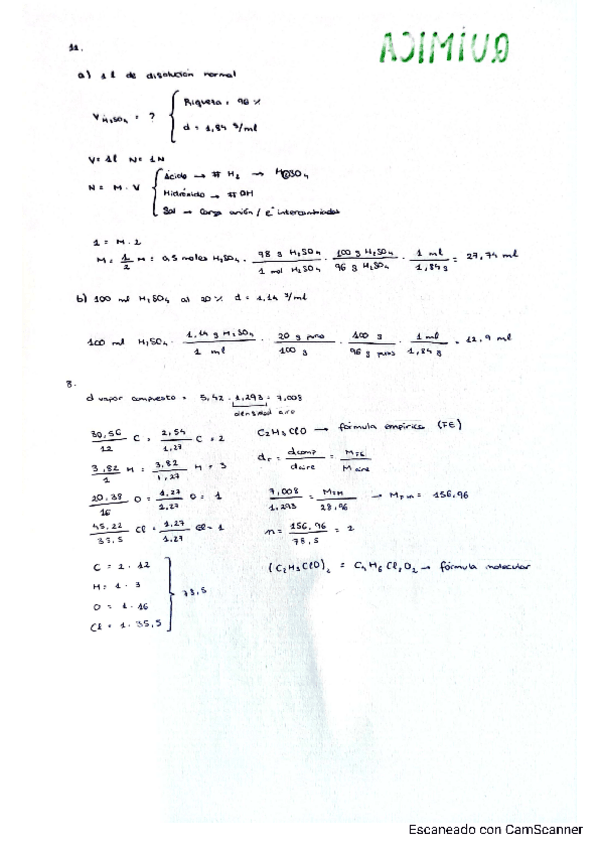 QUÍMICA
11.
a) 1 l de disolución normal
V H₂SO₄ = ? { Riqueza = 96 %
d = 1,84 g/ml
V = 1l N = 1N
N = M · V { Ácido → # H₂ → H②SO₄
Hidróxido → # OH
Sal → Carga anión / e⁻ intercambiados
1 = M · 2
M = 1/2 M = 0,5 moles H₂SO₄ · 98 g H₂SO₄ / 1 mol H₂SO₄ · 100 g H₂SO₄ / 96 g H₂SO₄ · 1 ml / 1,84 g = 27,74 ml
b) 100 ml H₂SO₄ al 20 % d = 1,14 g/ml
100 ml H₂SO₄ · 1,14 g H₂SO₄ / 1 ml · 20 g puro / 100 g · 100 g / 96 g puros · 1 ml / 1,84 g = 12,9 ml
8.
d vapor compuesto = 5,42 · 1,293 = 7,008
densidad aire
30,56/12 C = 2,54/1,27 C = 2
3,82/1 H = 3,82/1,27 H = 3
20,38/16 O = 1,27/1,27 O = 1
45,22/35,5 Cl = 1,27/1,27 Cl = 1
C = 2 · 12
H = 1 · 3
O = 1 · 16
Cl = 1 · 35,5
} 78,5
C₂H₃ClO → fórmula empírica (FE)
dr = dcomp/daire = MFE/Maire
7,008/1,293 = MFM/28,96 → MFM = 156,96
n = 156,96/78,5 = 2
(C₂H₃ClO)₂ = C₄H₆Cl₂O₂ → fórmula molecular
Escaneado con CamScanner